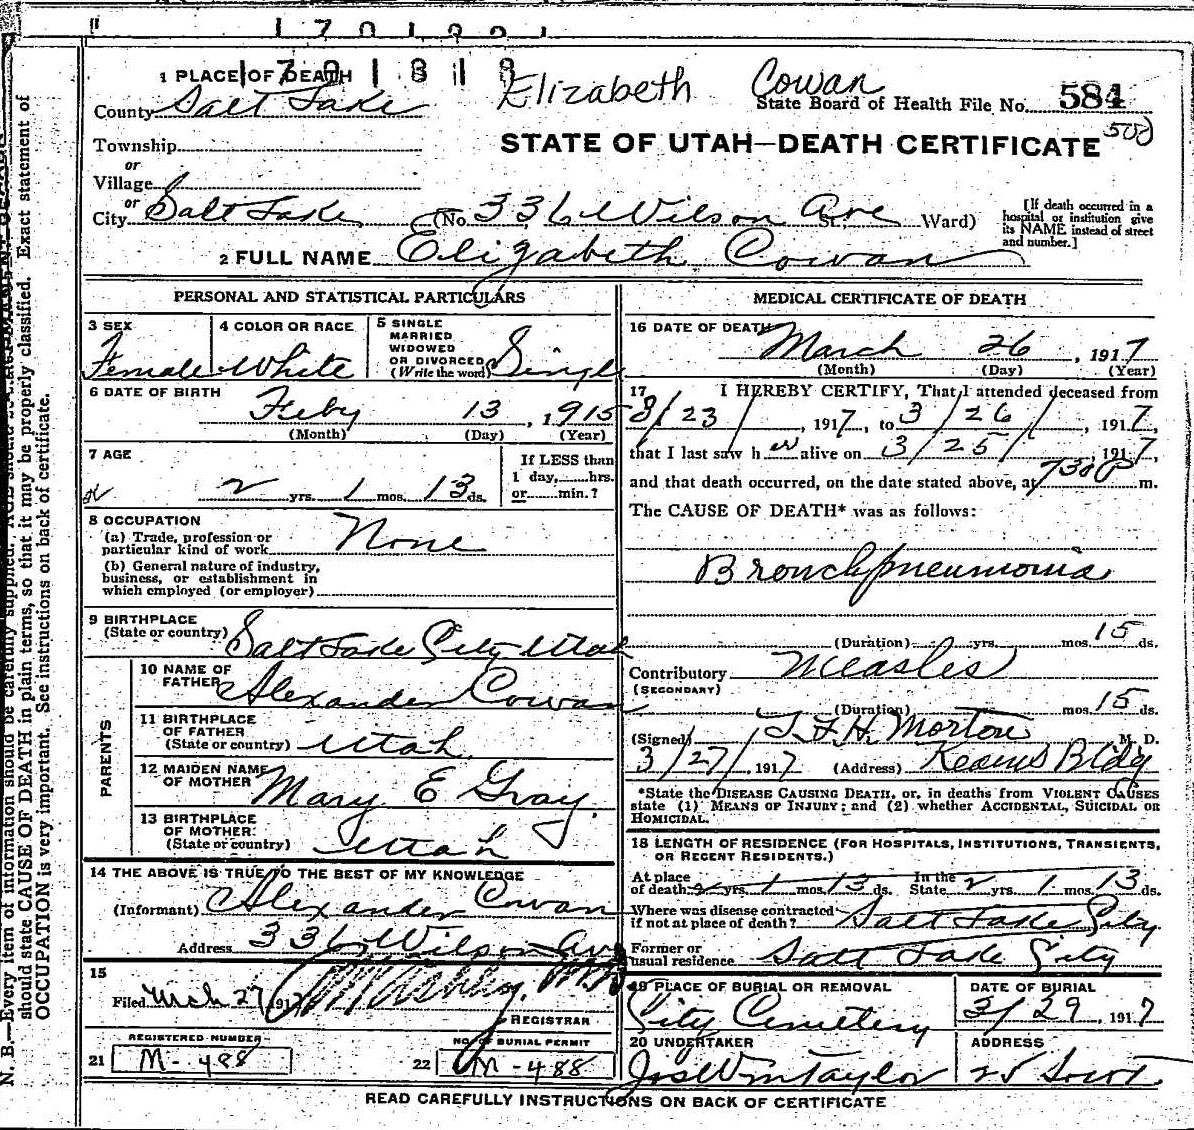 1701818
1 PLACE OF DEATH
Elizabeth Cowan
County Salt Lake
State Board of Health File No. 584
Township
500
or
STATE OF UTAH—DEATH CERTIFICATE
Village
or
City Salt Lake (No. 336 Wilson Ave St.; Ward)
[If death occurred in a
hospital or institution give
its NAME instead of street
and number.]
2 FULL NAME Elizabeth Cowan
PERSONAL AND STATISTICAL PARTICULARS
3 SEX
Female
4 COLOR OR RACE
White
5 SINGLE
MARRIED
WIDOWED
OR DIVORCED
(Write the word) Single
6 DATE OF BIRTH
Feby 13, 1915
(Month) (Day) (Year)
7 AGE
2 yrs. 1 mos. 13 ds.
If LESS than
1 day, hrs.
or min.?
8 OCCUPATION
(a) Trade, profession or
particular kind of work None
(b) General nature of industry,
business, or establishment in
which employed (or employer)
9 BIRTHPLACE
(State or country) Salt Lake City Utah
PARENTS
10 NAME OF
FATHER Alexander Cowan
11 BIRTHPLACE
OF FATHER
(State or country) Utah
12 MAIDEN NAME
OF MOTHER Mary E Gray.
13 BIRTHPLACE
OF MOTHER:
(State or country) Utah
14 THE ABOVE IS TRUE TO THE BEST OF MY KNOWLEDGE
(Informant) Alexander Cowan
Address 336 Wilson Ave
15
Filed Mch 27, 1917
REGISTRAR
REGISTERED NUMBER
21 M-488
NO. OF BURIAL PERMIT
22 M-488
MEDICAL CERTIFICATE OF DEATH
16 DATE OF DEATH
March 26, 1917
(Month) (Day) (Year)
17 I HEREBY CERTIFY, That I attended deceased from
3/23/, 1917, to 3/26/, 1917,
that I last saw her alive on 3/25/, 1917,
and that death occurred, on the date stated above, at 730 P m.
The CAUSE OF DEATH* was as follows:
Bronchpneumonia
(Duration) yrs. mos. 15 ds.
Contributory Measles
(SECONDARY)
(Duration) mos. 15 ds.
(Signed) T. F. H. Morton M. D.
3/27/, 1917 (Address) Kearns Bldg
*State the DISEASE CAUSING DEATH, or, in deaths from VIOLENT CAUSES
state (1) MEANS OF INJURY; and (2) whether ACCIDENTAL, SUICIDAL OR
HOMICIDAL.
18 LENGTH OF RESIDENCE (FOR HOSPITALS, INSTITUTIONS, TRANSIENTS,
OR RECENT RESIDENTS.)
At place
of death 2 yrs. 1 mos. 13 ds. In the
State 2 yrs. 1 mos. 13 ds.
Where was disease contracted
if not at place of death? Salt Lake City
Former or
usual residence Salt Lake City
19 PLACE OF BURIAL OR REMOVAL
City Cemetery
DATE OF BURIAL
3/29, 1917
20 UNDERTAKER
Jos Wm Taylor
ADDRESS
READ CAREFULLY INSTRUCTIONS ON BACK OF CERTIFICATE
N. B.—Every item of information should be carefully supplied.
should state CAUSE OF DEATH in plain terms, so that it may be properly classified. Exact statement of
OCCUPATION is very important. See instructions on back of certificate.